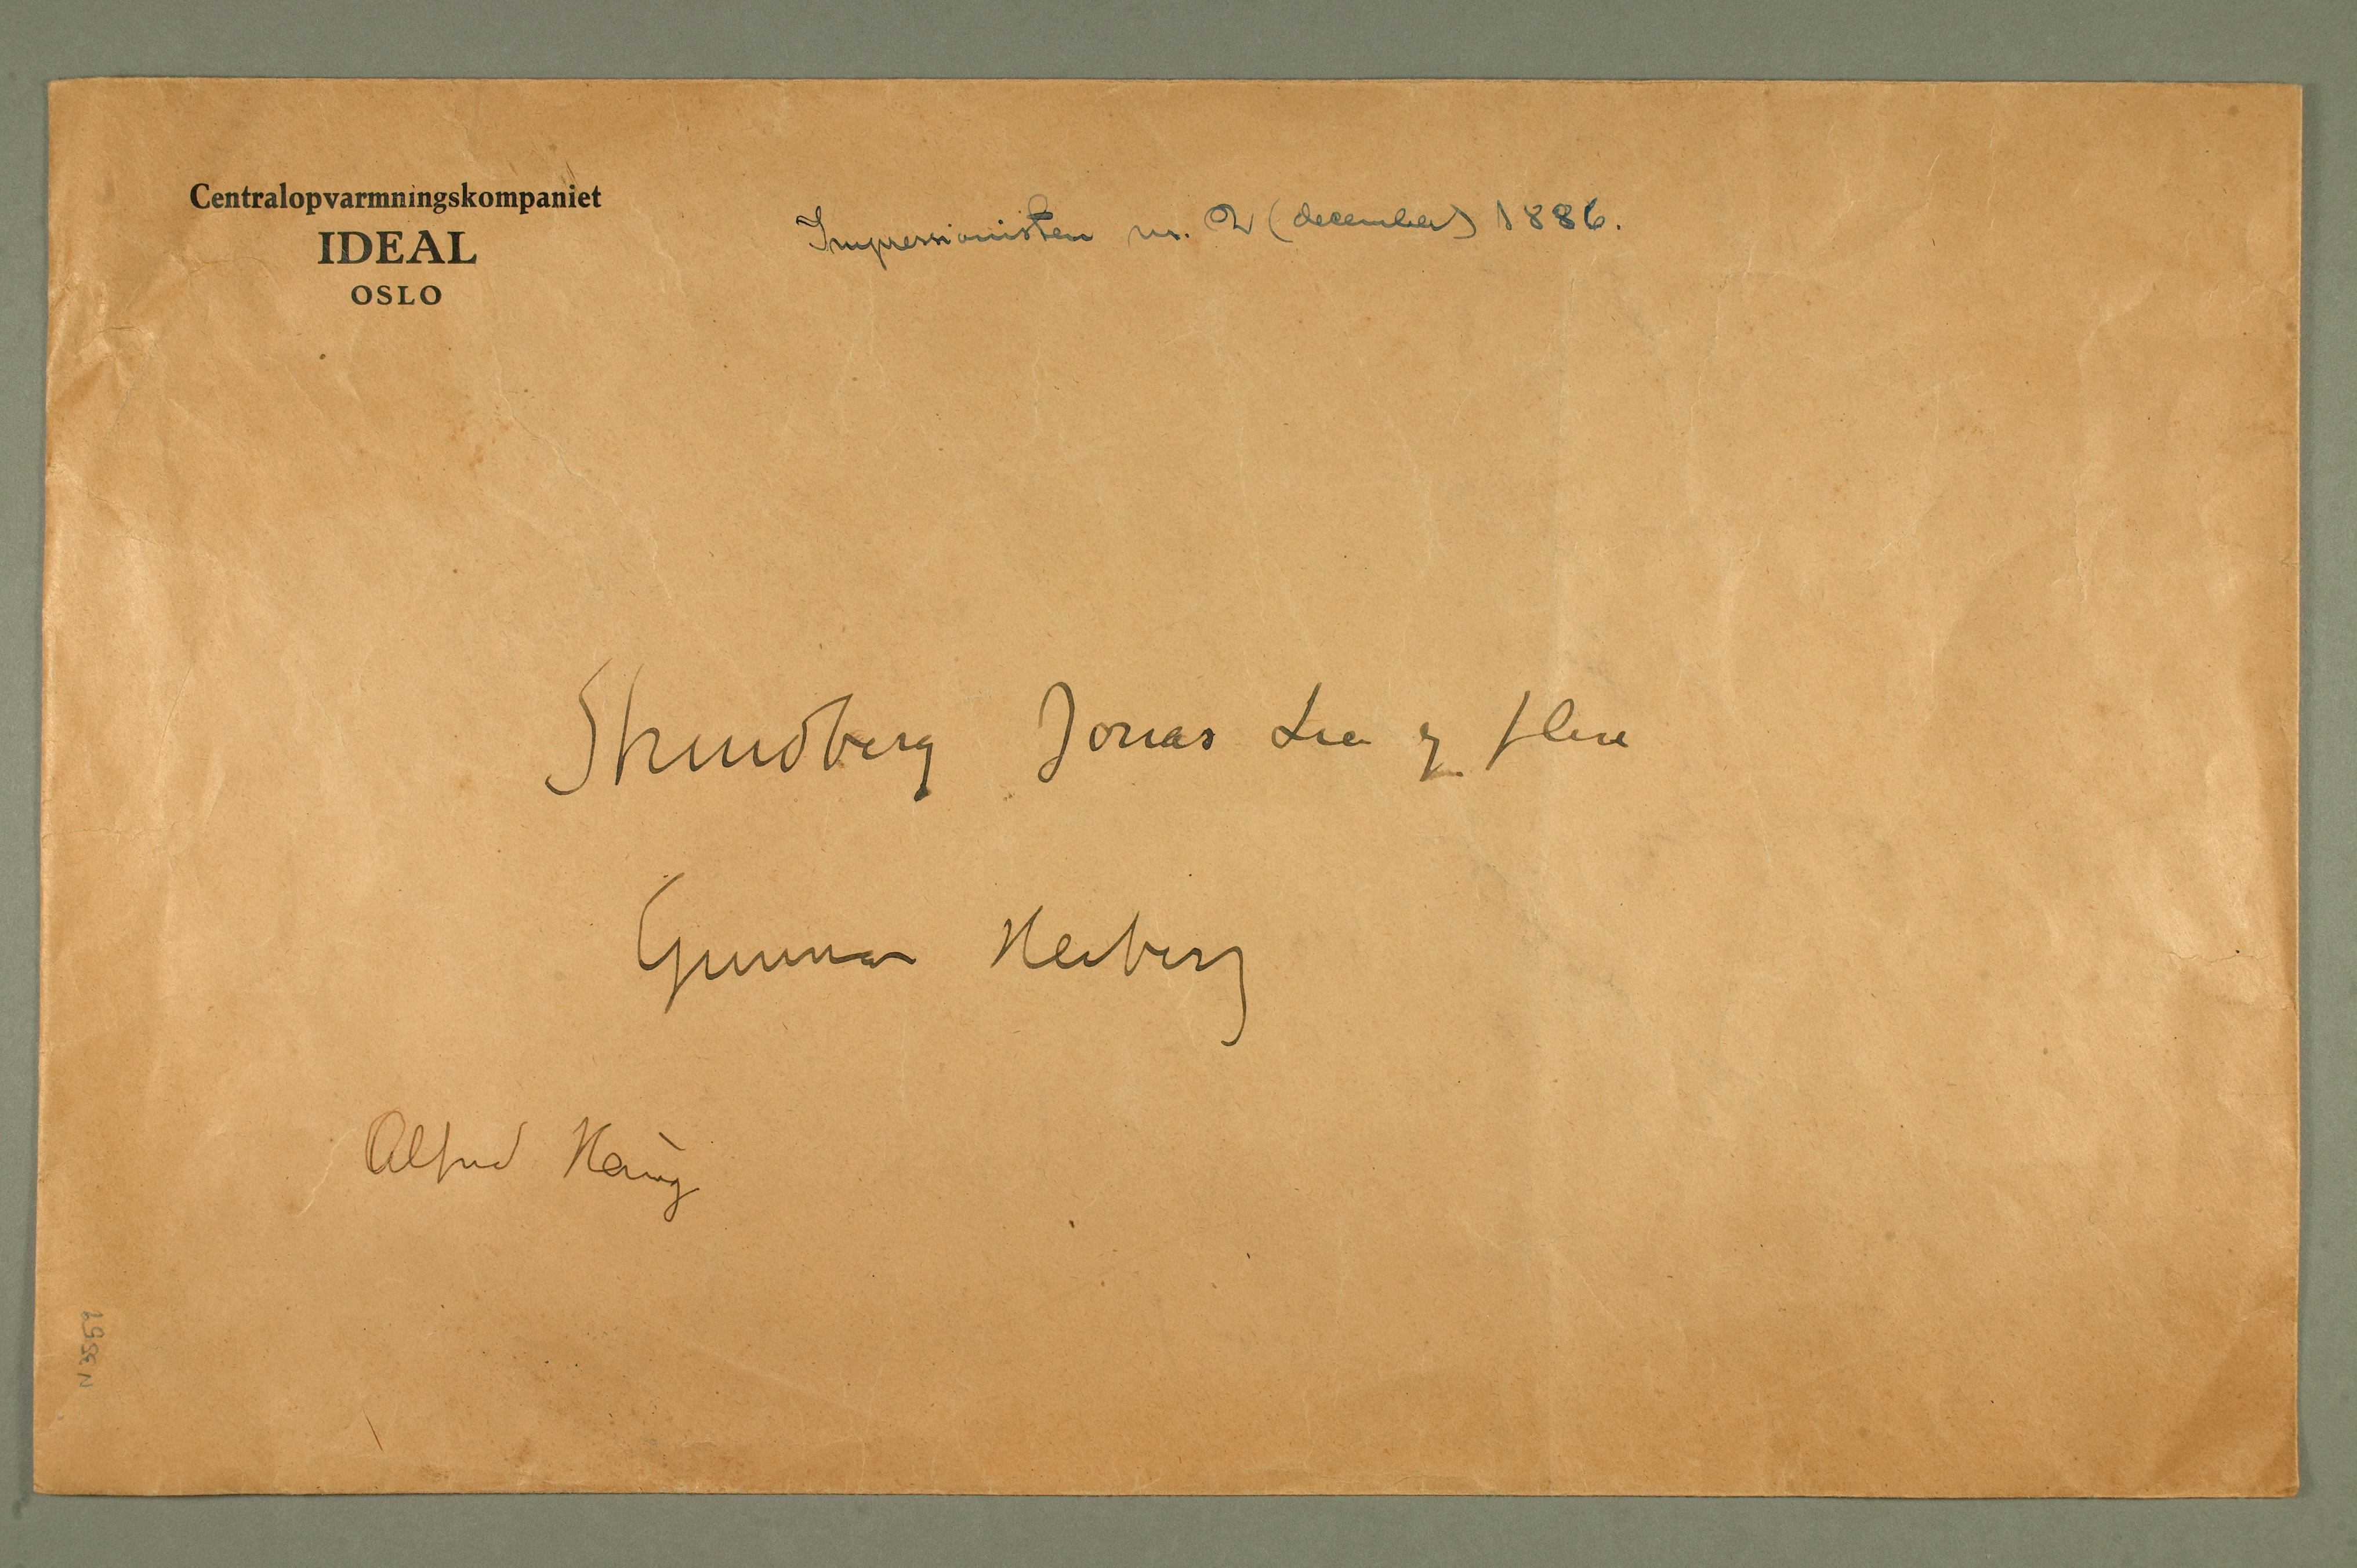 Centralopvarmningskompaniet
IDEAL
OSLO
Impressionisten nr. 2 (december) 1886.
Strindberg Jonas Lie og flere
Gunnar Heiberg
Alfred Hauge
N 3559